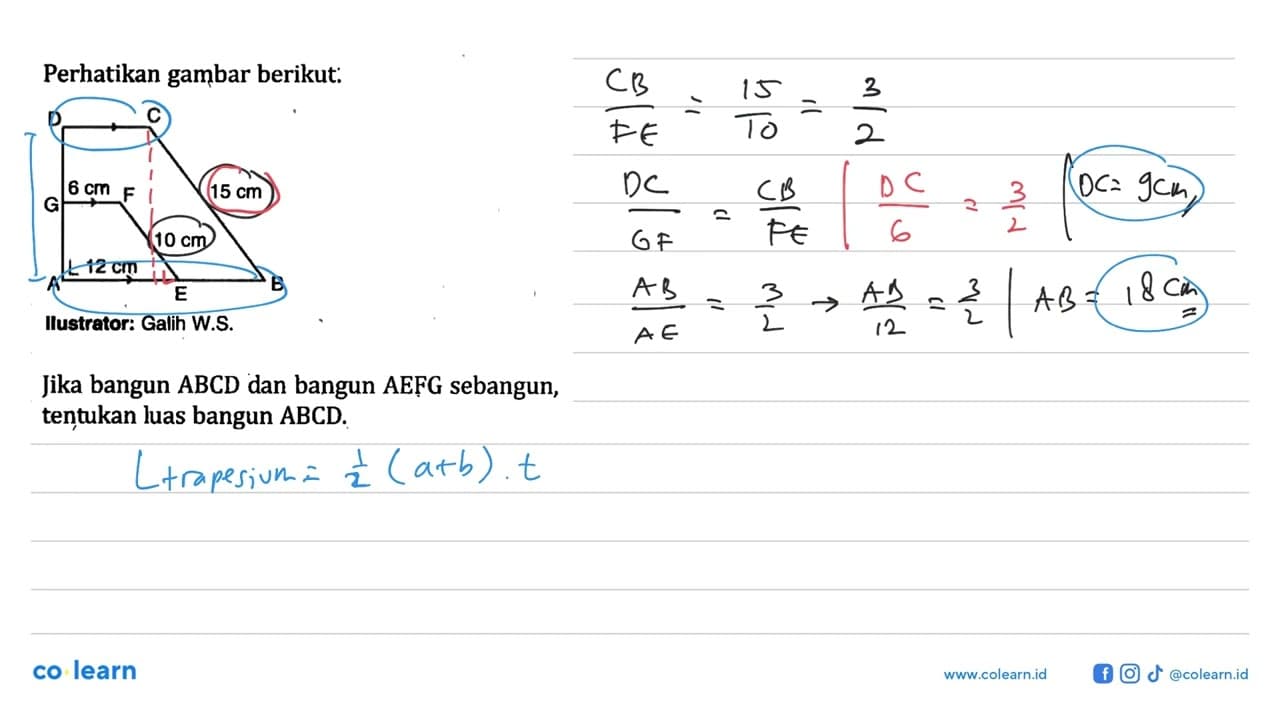 Perhatikan gambar berikut:
D C
6 cm F 15 cm
G
10 cm
12 cm
A E B
Ilustrator: Galih W.S.
Jika bangun ABCD dan bangun AEFG sebangun,
tentukan luas bangun ABCD.
L trapesium = 1/2 (a+b) . t
CB/FE = 15/10 = 3/2
DC/GF = CB/FE | DC/6 = 3/2 | DC = 9cm
AB/AE = 3/2 → AB/12 = 3/2 | AB = 18 cm
co learn
www.colearn.id @colearn.id